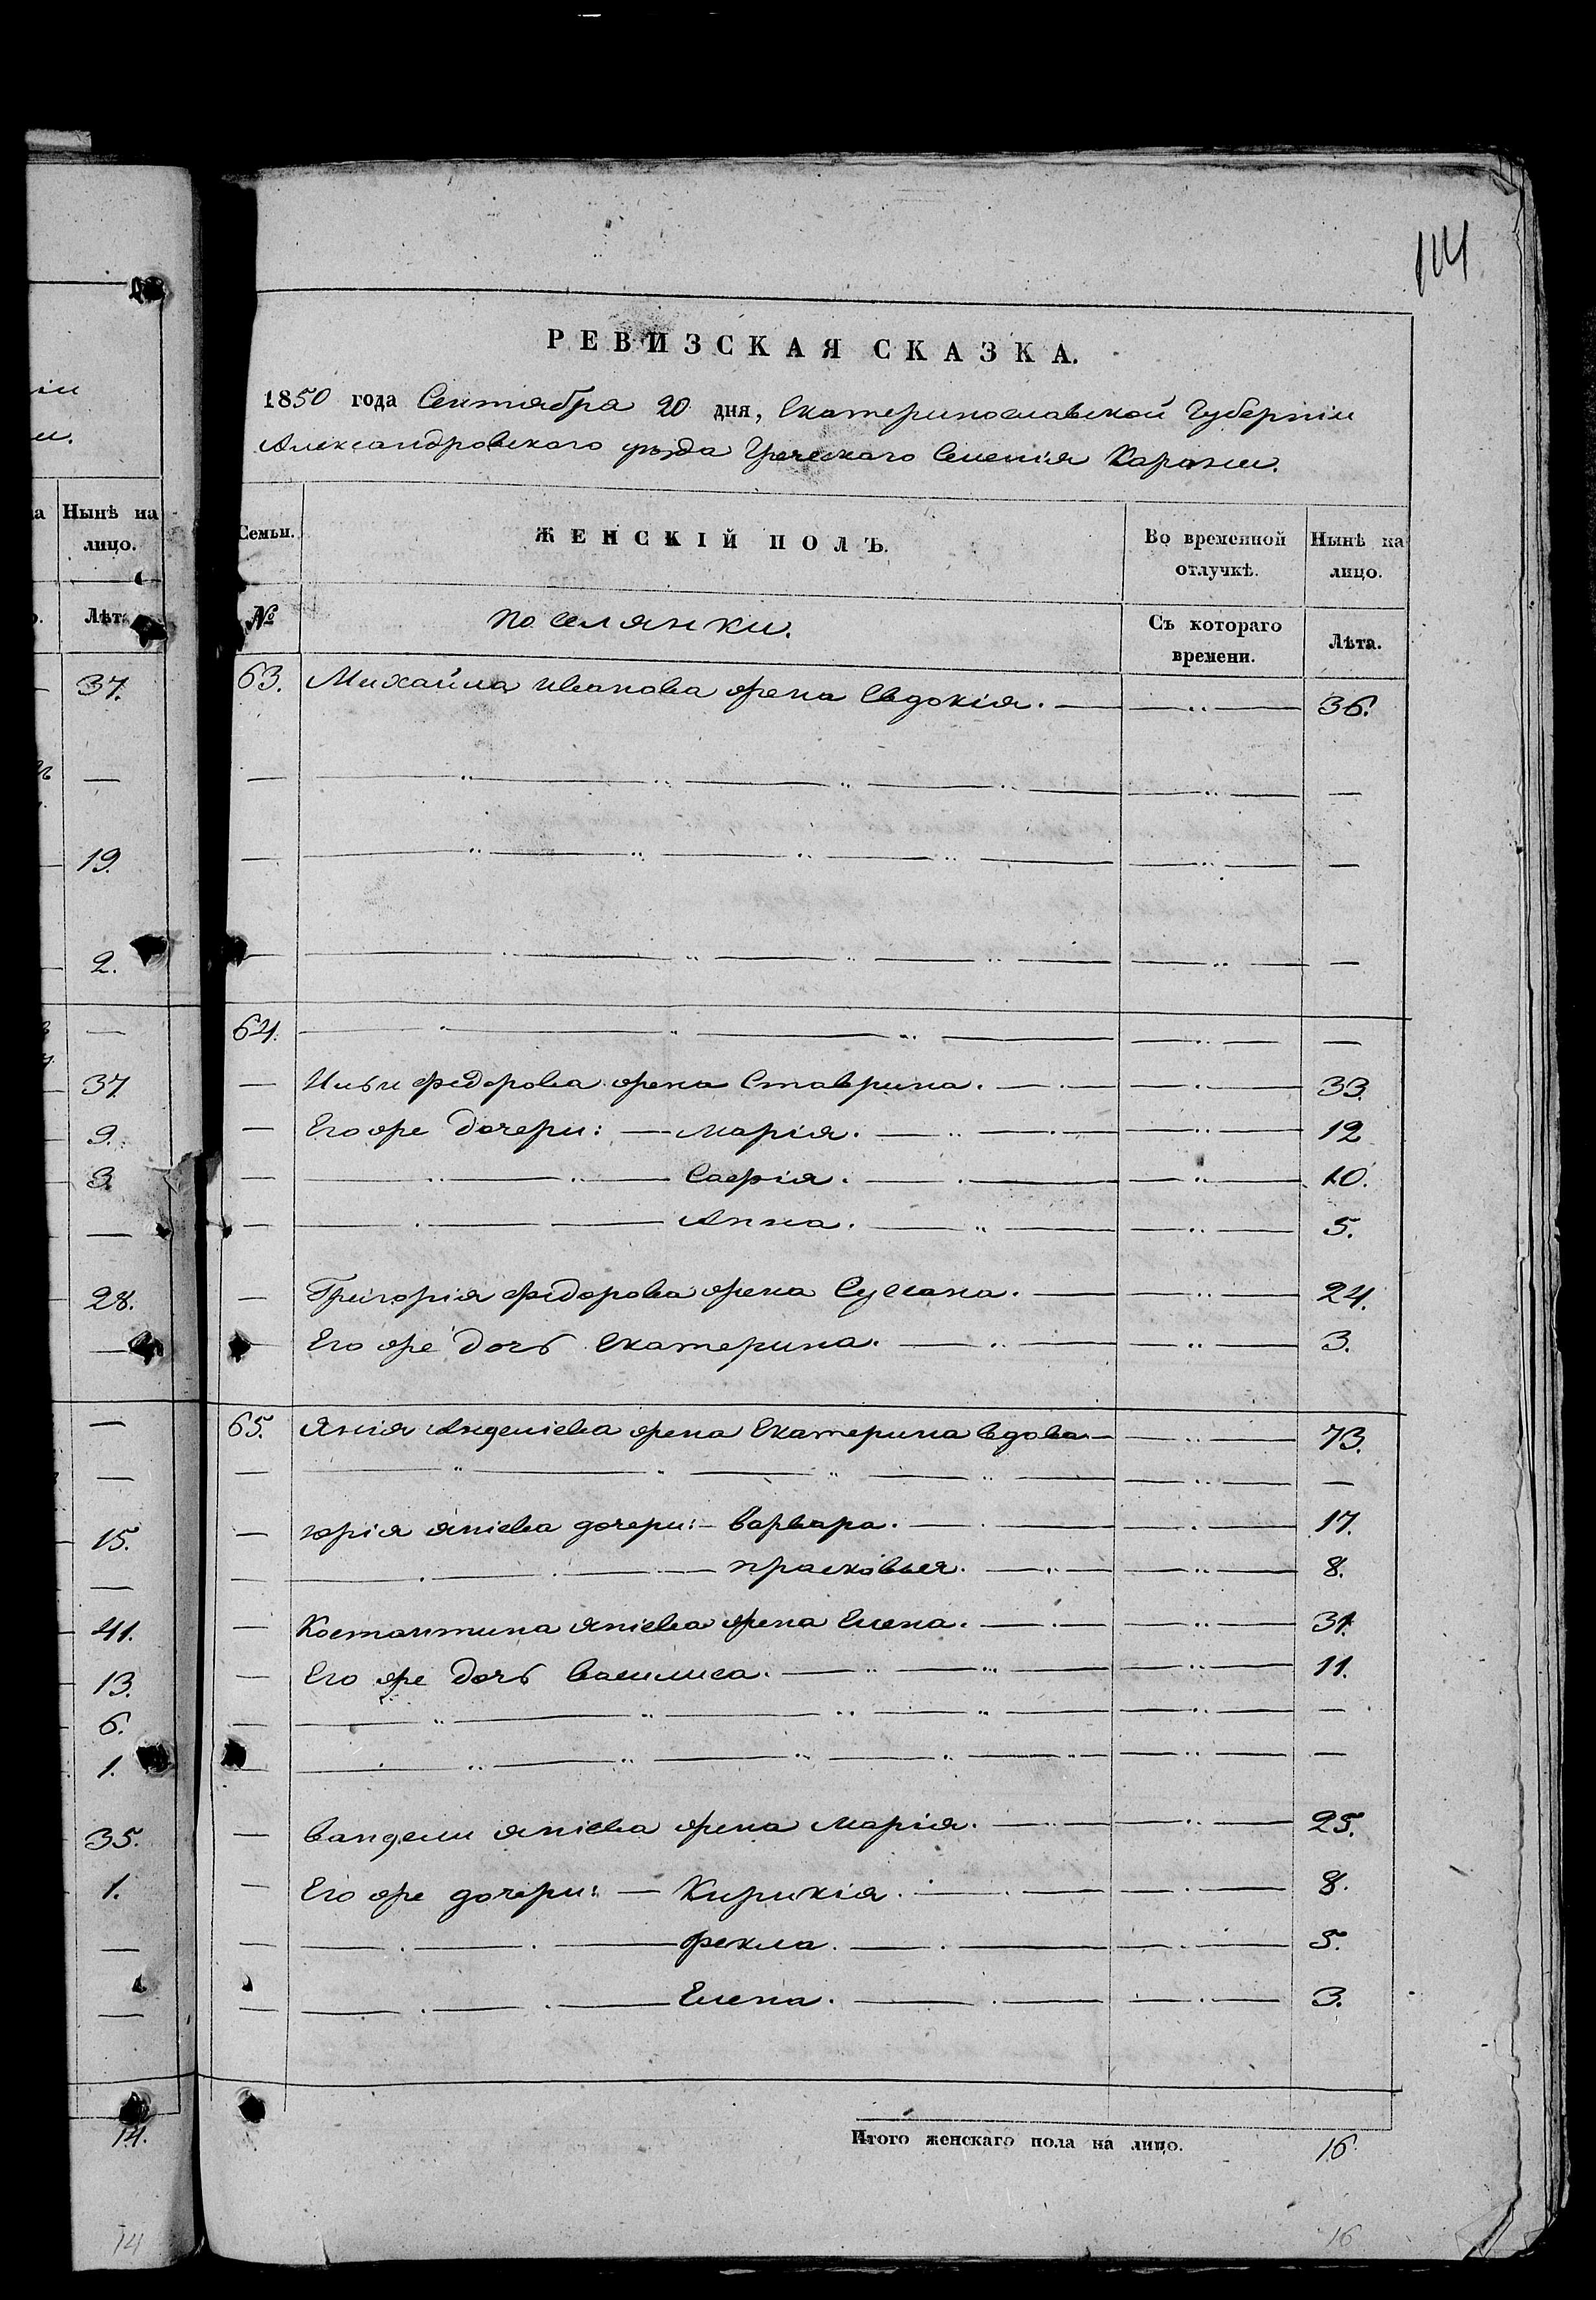 114
РЕВИЗСКАЯ СКАЗКА.
1850 года Сентября 20 дня, Екатеринославской Губерніи
Александровского уѣзда Греческаго Селенія Карани.
Нынѣ на лицо.
Лѣта
37.
—
19.
2.
—
37
9.
3.
—
28.
—
—
—
15.
—
41.
13.
6.
1.
35.
1.
—
—
14.
14
Семьи. ЖЕНСКІЙ ПОЛЪ. Во временной отлучкѣ. Нынѣ на лицо.
№ Поселянки. Съ котораго времени. Лѣта.
63. Михайла Иванова жена Евдокія. — 36.
— — — —
— — — —
— — — —
64. — — —
— Ильи Федорова жена Ставрина. — 33.
— Его же дочери: — Марія. — 12
— — Саерія. — 10.
— — Анна. — 5.
— Григорія Федорова жена Сусана. — 24.
— Его же дочь Екатерина. — 3.
65. Янія Анделіева жена Екатерина вдова — 73.
— — — —
— Юрія Яніева дочери: — Варвара. — 17.
— — Прасковья. — 8.
— Костантина Яніева жена Елена. — 31.
— Его же дочь Василиса. — 11.
— — — —
— — — —
— Вандели Яніева жена Марія. — 25.
— Его же дочери: — Кирикія. — 8.
— — Фекла. — 5.
— — Елена. — 3.
Итого женскаго пола на лицо. 16.
16